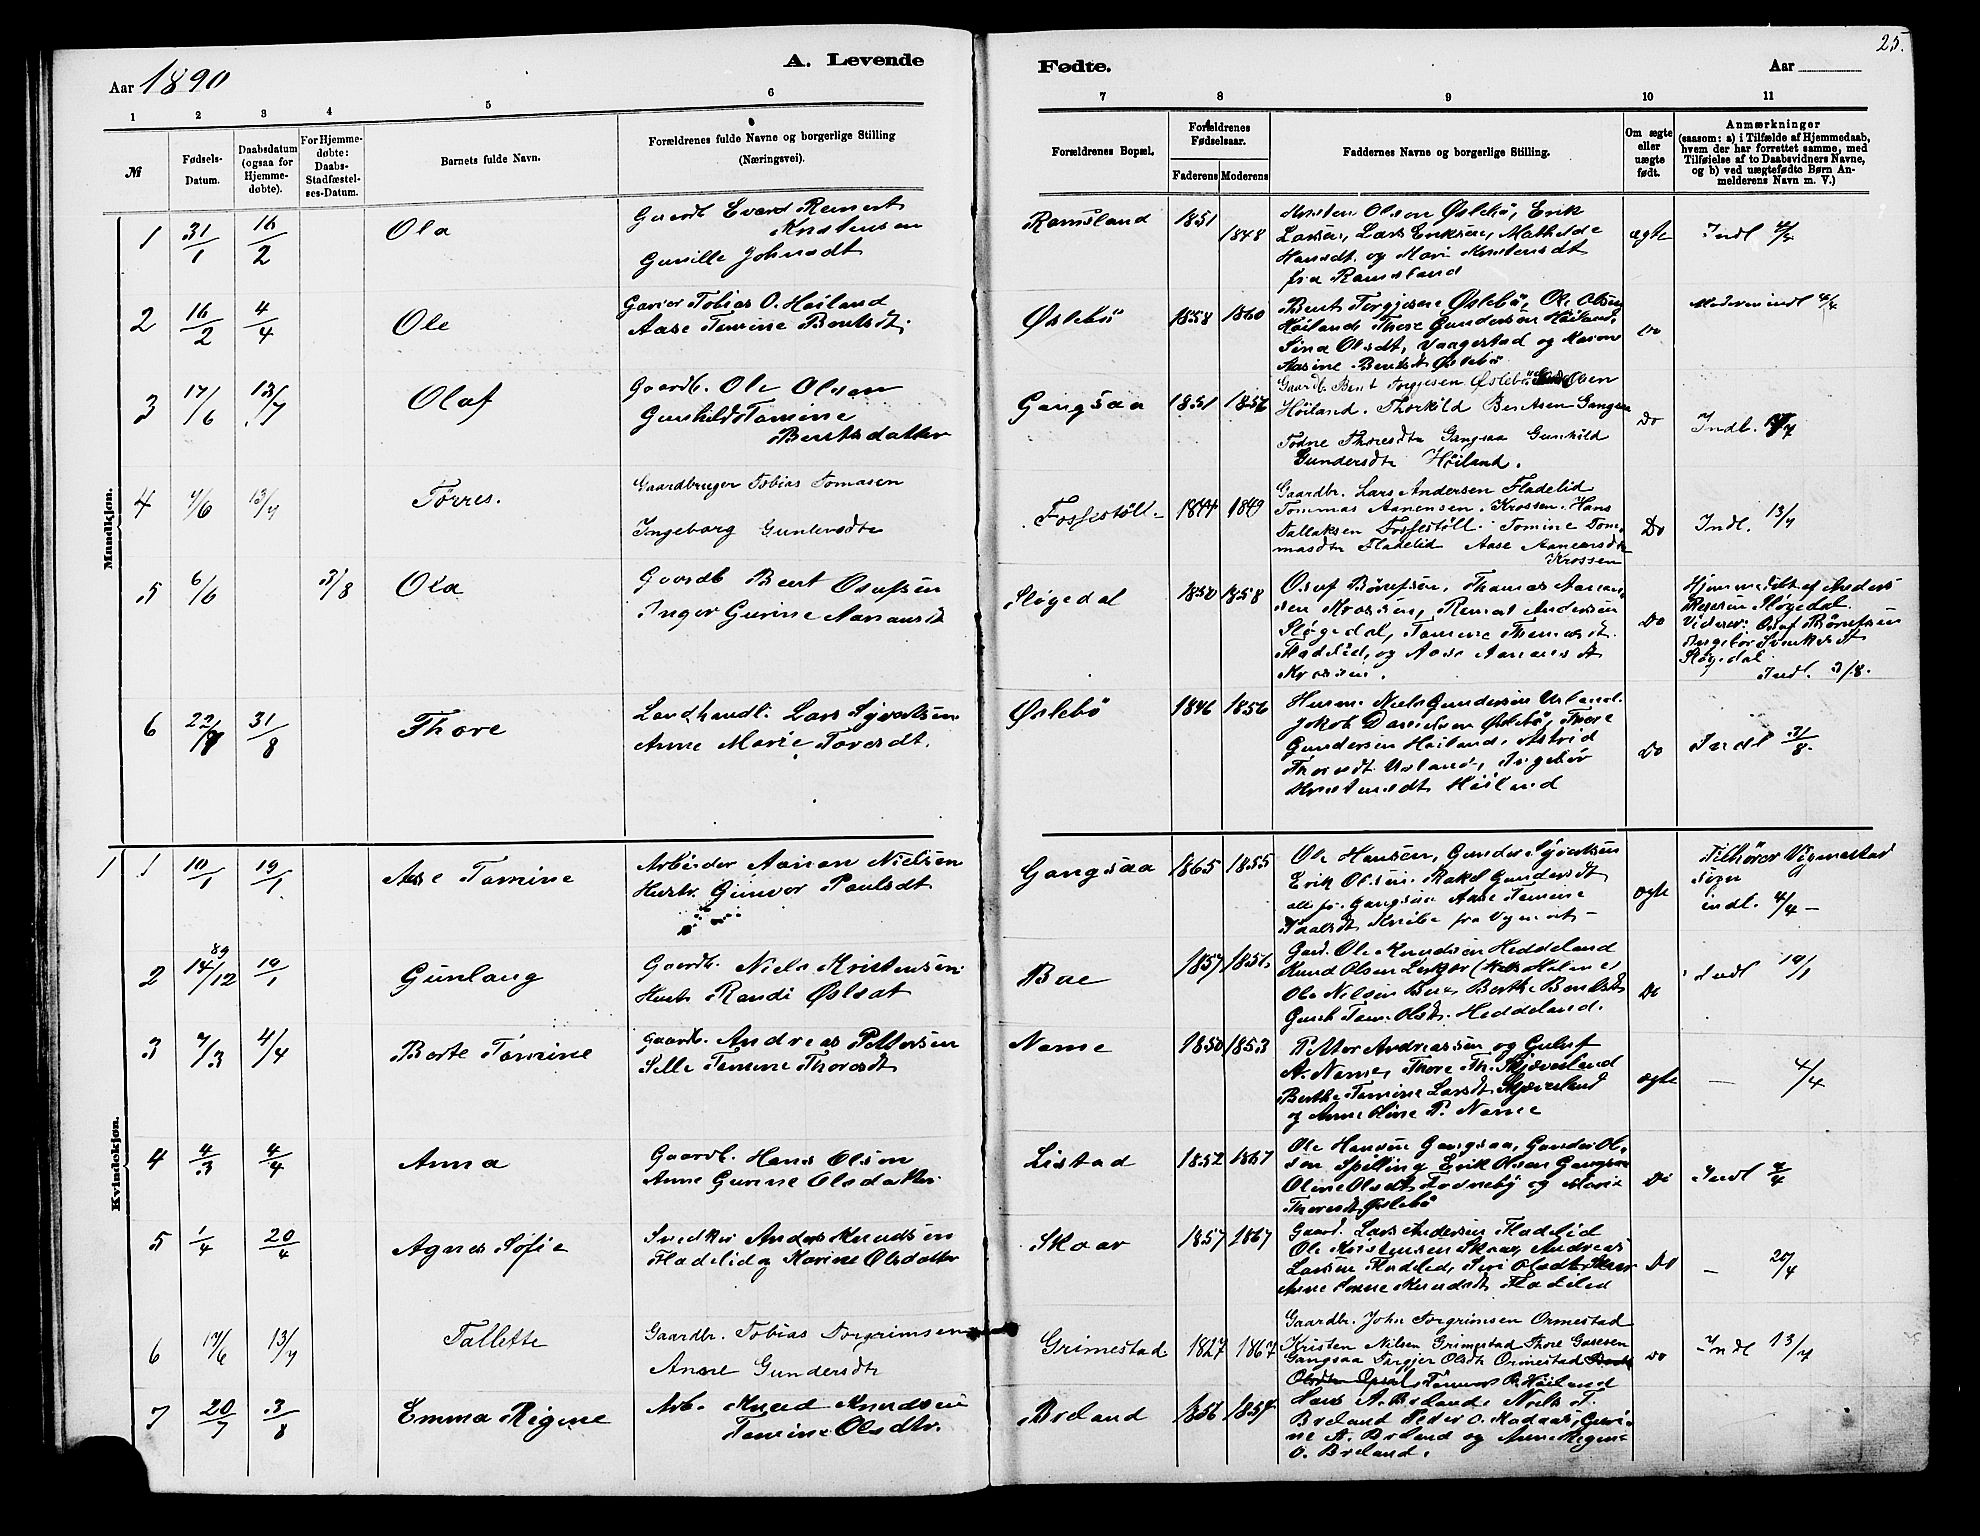 25.
Aar 1890
A. Levende
Fødte.
Aar
1 2 3 4 5 6
7 8 9 10 11
№
Fødsels-
Datum.
Daabsdatum
(ogsaa for
Hjemme-
døbte).
For Hjemme-
døbte:
Daabs-
Stadfæstel-
ses-Datum.
Barnets fulde Navn.
Forældrenes fulde Navne og borgerlige Stilling
(Næringsvei).
Forældrenes Bopæl.
Forældrenes
Fødselsaar.
Faderens Moderens
Faddernes Navne og borgerlige Stilling.
Om ægte
eller
uægte
født.
Anmærkninger
(saasom: a) i Tilfælde af Hjemmedaab,
hvem der har forrettet samme, med
Tilføielse af to Daabsvidners Navne,
og b) ved uægtefødte Børn An-
melderens Navn m. V.)
Mandkjøn.
1 31/1 16/2 Ola
Gaardb Evard Reinert
Kristensen
Gunille Johnsdt
Ramsland 1851 1848
Kristen Olson Øslebö, Erik
Larsen, Lars Eriksen, Mathilde
Hansdt. og Mari Kristensdt
fra Ramsland
ægte
Indl
2 16/2 4/4 Ole
Garver Tobias O. Høiland
Aase Tomine Bentsdt.
Øslebö 1858 1860
Bent Torgjersen Øslebö, Ole Olsen
Høiland, Thore Gundersen Høiland,
Sina Olsdt, Vaagestad og Maren
Aasine Bentsdt Øslebö.
Do
Moderen indl 4/4
3 17/6 13/7 Olaf
Gaardb. Ole Olsen
Gunhild Tomine
Bentsdatter
Gangsaa 1851 1856
Gaardb. Bent Torgjesen Øslebö Olsen
Høiland. Thorkild Bentsen Gangsaa
Todne Thoresdtr Gangsaa Gunhild
Gundersdtr Høiland.
Do
Indl. 13/7
4 7/6 13/7 Tørres.
Gaardbruger Tobias Tomasen
Ingeborg Gundersdtr
Fossestøll 1844 1849
Gaardbr. Lars Andersen Fladelid
Tommas Aanensen. Krossen. Hans
Tallaksen Fossestøll. Tomine Tom-
masdtr Fladelid Aase Aanensdtr
Krossen
Do
Indl. 13/7
5 6/6 3/8 Ola
Gaardb Bent Osufsen
Inger Gurine Aanensdt
Sløgedal 1850 1858
Osuf Börufsen, Thomas Aanen-
sen Krossen, Reinert Andersen
Sløgedal, Tomine Thomasdt.
Fladelid, og Aase Aanensdt
Krossen.
Do
Hjemmedöbt af Anders
Sløgedal.
Vidner: Osuf Börufsen
Sløgedal
Indl. 3/8.
6 31/8 Thore
Landhandl. Lars Syvertsen
Anne Marie Toresdt.
Øslebö 1846 1856
Niels Gundersen
Jakob Danielsen Øslebö, Thore
Gundersen Høiland, Astrid
Thoresdt. Ingebör
Kristensdt Høiland
Do
Indl 31/8.
Kvindekjøn.
1 1 10/1 19/1 Aase Tomine
Arbeider Aanen Nielsen
Hustr. Gunvor Paulsdt
Gangsaa 1865 1855
Ole Hansen, Gunder Syvertsen
Erik Olsen. Rakel Gundersdt
alle fr. Gangsaa Aase Tomine
fra
ægte
Tilhører Vigmostad
Sogn
indl. 4/4 —
2 14/12 89 19/1 Gunlaug
Gaardb. Niels Kristensen.
Hustr Randi Øslsdt
Boe 1857 1856
Gad. Ole Knudsen Heddeland
Knud Olsen
Ole Nilsen Boe, Berthe Bentsdt
Gunh Tom. Olsdt. Heddeland.
Do
Indl 19/1
3 7/3 4/4 Berte Tomine
Gaardb. Andreas Pettersen
Sille Tomine Thoresdt
Nome 1850 1853
Petter Andreassen og Guluf
A. Nome, Thore Th. Skjæveland
Berthe Tomine Larsdt Skjæveland
og Anne Oline P. Nome
ægte
— 4/4
4 4/3 4/4 Anna
Gaardb. Hans Olsen
Anne Gurine Olsdatter.
Listad 1852 1867
Ole Hansen Gangsaa, Gunder Ol-
sen Spelling Erik Olsen Gangsaa
Oline Olsdt Todnebö og Marie
Thoresdt Øslebö
Do
Indl 4/4
5 1/4 20/4 Agnes Sofie
Snedker Anders Knudsen
Fladelid og Karine Olsdatter
Skaar 1857 1867
Gaard. Lars Andersen Fladelid
Ole Kristensen Skaar, Andreas
Larsen Fladelid, Siri Olsdt. Skaar
Anne Tonne Knudsdt Fladelid
Do
— 20/4
6 17/6 13/7 Tallette
Gaardbr. Tobias Torgrimsen
Anne Gundersdtr
Grimestad 1827 1867
Gaardbr. John Torgrimsen Ormestad
Kristen Nilsen Grimestad Thore Gaseson
Gangsaa Torgjer Olsdtr Ormestad
Høiland
Do
Indl 13/7
7 20/7 3/8 Emma Regine
Arb. Knud Knudsen
Tomine Olsdtr.
Breland 1856 1854
Hans A. Breland, Niels T.
Breland Peder O. Guri-
ne A. Breland og Anne Regine
O. Breland.